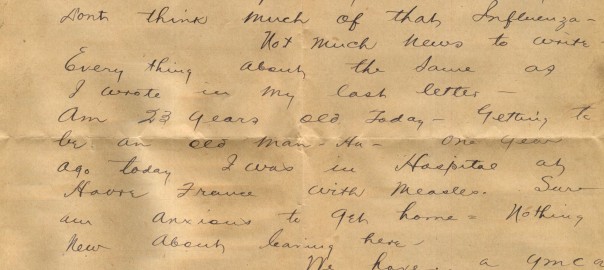 Dont think much of that Influenza -
Not much news to write -
Every thing about the same as
I wrote in my last letter -
Am 23 years old Today - Getting to
be an old man - Ha - One year
ago today I was in Hospital at
Havre France with Measles. Sure
am anxious to get home - Nothing
New About leaving here -
We have a YMCA